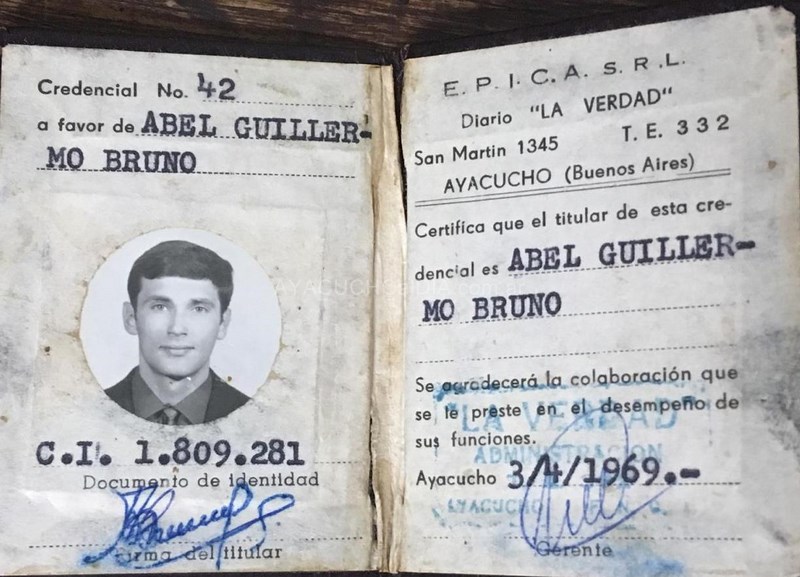 Credencial No. 42
a favor de ABEL GUILLER-
MO BRUNO
C.I. 1.809.281
Documento de identidad
Firma del titular
E. P. I. C. A. S. R. L.
Diario "LA VERDAD"
San Martin 1345 T. E. 3 3 2
AYACUCHO (Buenos Aires)
Certifica que el titular de esta cre-
dencial es ABEL GUILLER-
MO BRUNO
Se agradecerá la colaboración que
se le preste en el desempeño de
sus funciones.
"LA VERDAD"
ADMINISTRACION
Ayacucho 3/4/1969.-
AYACUCHO
Gerente